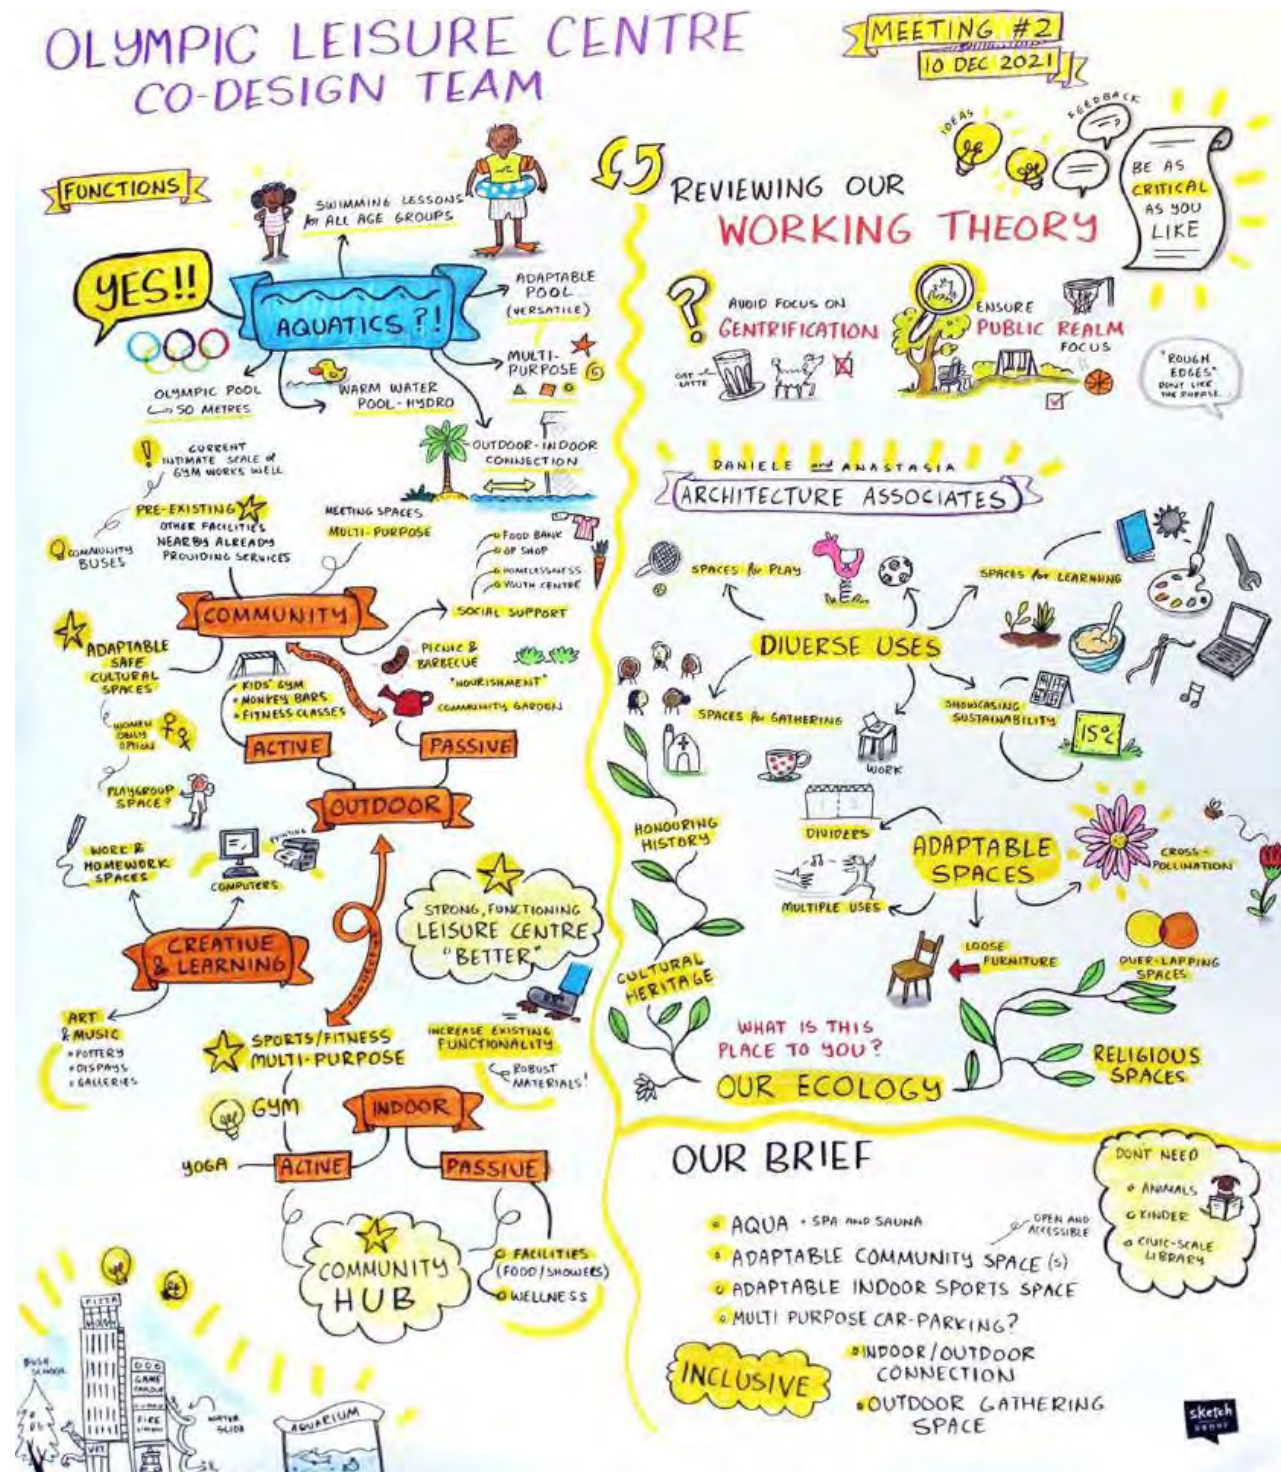 OLYMPIC LEISURE CENTRE
CO-DESIGN TEAM
MEETING #2
10 DEC 2021
FUNCTIONS
SWIMMING LESSONS
for ALL AGE GROUPS
YES!!
AQUATICS?!
ADAPTABLE
POOL
(VERSATILE)
MULTI-
PURPOSE
OLYMPIC POOL
50 METRES
WARM WATER
POOL-HYDRO
OUTDOOR-INDOOR
CONNECTION
CURRENT
INTIMATE SCALE of
GYM WORKS WELL
PRE-EXISTING
OTHER FACILITIES
NEARBY ALREADY
PROVIDING SERVICES
COMMUNITY
BUSES
MEETING SPACES
MULTI-PURPOSE
FOOD BANK
OP SHOP
HOMELESSNESS
YOUTH CENTRE
SOCIAL SUPPORT
COMMUNITY
ADAPTABLE
SAFE
CULTURAL
SPACES
WOMEN
ONLY
OPTION
PLAYGROUP
SPACE?
KIDS' GYM
• MONKEY BARS
• FITNESS CLASSES
PICNIC &
BARBECUE
"NOURISHMENT"
COMMUNITY GARDEN
ACTIVE
PASSIVE
OUTDOOR
WORK &
HOMEWORK
SPACES
COMPUTERS
PRINTING
CREATIVE
& LEARNING
ART
& MUSIC
• POTTERY
• DISPLAYS
• GALLERIES
STRONG, FUNCTIONING
LEISURE CENTRE
"BETTER"
SPORTS/FITNESS
MULTI-PURPOSE
INCREASE EXISTING
FUNCTIONALITY
ROBUST
MATERIALS!
GYM
INDOOR
YOGA
ACTIVE
PASSIVE
COMMUNITY
HUB
FACILITIES
(FOOD/SHOWERS)
WELLNESS
PIZZA
BUSH
SCHOOL
GAME
FIRE
VET
WATER
SLIDE
AQUARIUM
IDEAS
FEEDBACK
BE AS
CRITICAL
AS YOU
LIKE
REVIEWING OUR
WORKING THEORY
AVOID FOCUS ON
GENTRIFICATION
OAT
LATTE
ENSURE
PUBLIC REALM
FOCUS
"ROUGH
EDGES"
DON'T LIKE
THE PHRASE
DANIELE and ANASTASIA
ARCHITECTURE ASSOCIATES
SPACES for PLAY
SPACES for LEARNING
DIVERSE USES
SPACES for GATHERING
WORK
SHOWCASING
SUSTAINABILITY
15°C
HONOURING
HISTORY
DIVIDERS
ADAPTABLE
SPACES
CROSS-
POLLINATION
MULTIPLE USES
LOOSE
FURNITURE
OVER-LAPPING
SPACES
CULTURAL
HERITAGE
WHAT IS THIS
PLACE TO YOU?
OUR ECOLOGY
RELIGIOUS
SPACES
OUR BRIEF
AQUA • SPA AND SAUNA
OPEN AND
ACCESSIBLE
ADAPTABLE COMMUNITY SPACE (S)
ADAPTABLE INDOOR SPORTS SPACE
MULTI PURPOSE CAR-PARKING?
INDOOR/OUTDOOR
CONNECTION
OUTDOOR GATHERING
SPACE
INCLUSIVE
DONT NEED
ANIMALS
KINDER
CIVIC-SCALE
LIBRARY
sketch
GROUP